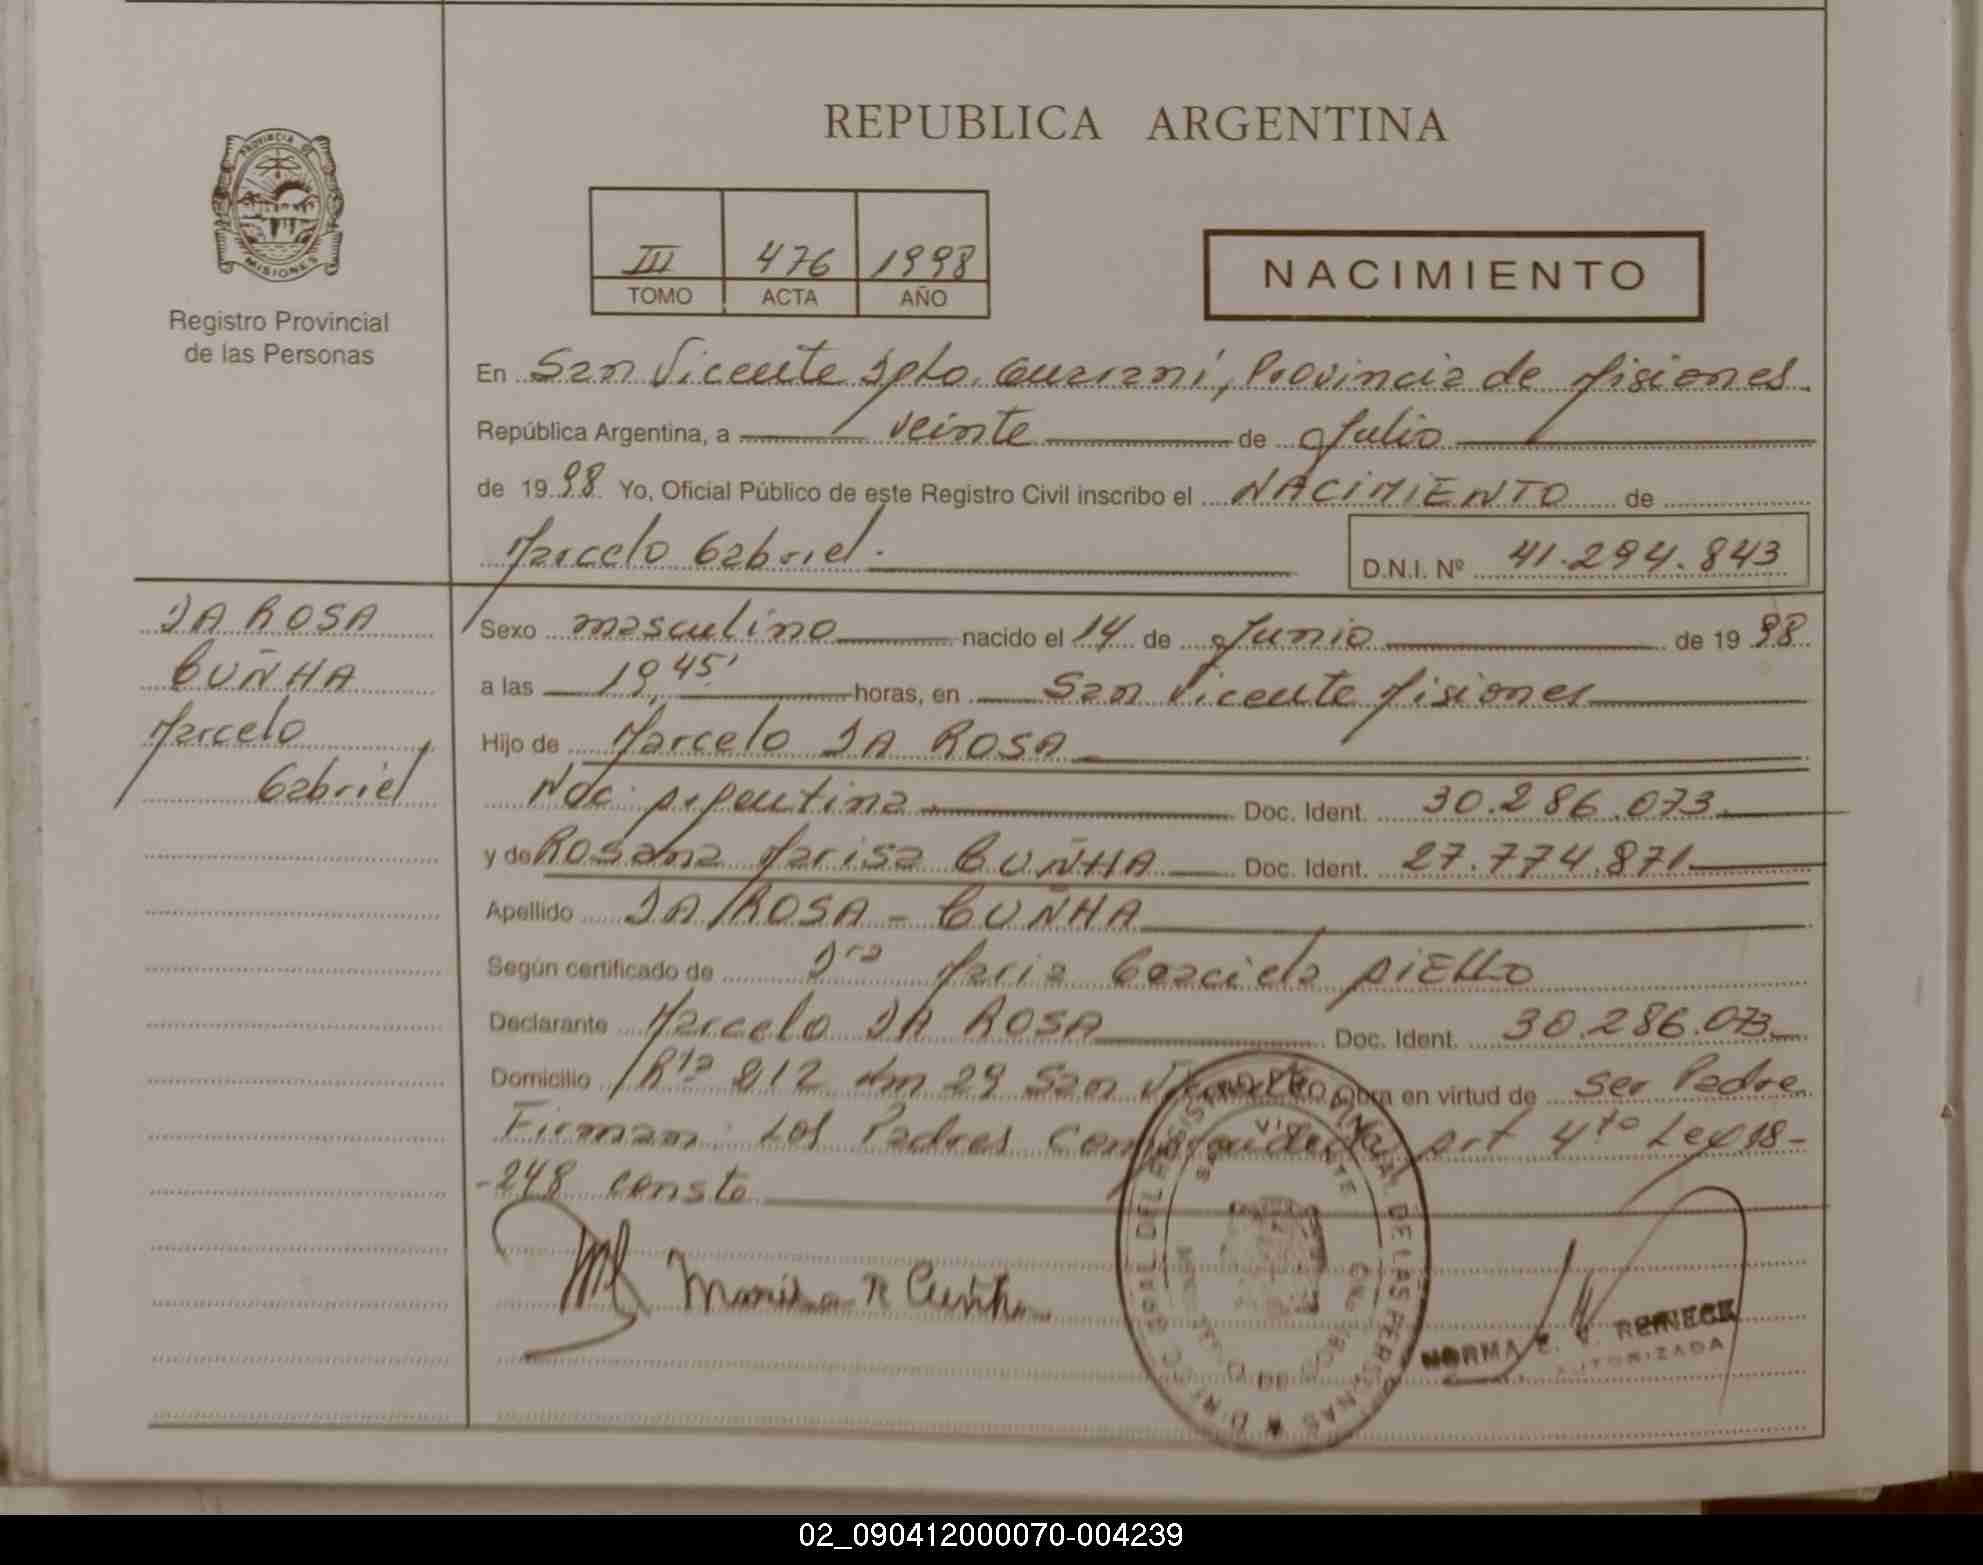 REPUBLICA ARGENTINA
PROVINCIA DE
MISIONES
Registro Provincial
de las Personas
III 476 1998
TOMO ACTA AÑO
NACIMIENTO
En San Vicente Dpto. Guaraní, Provincia de Misiones
República Argentina, a veinte de Julio
de 1998 Yo, Oficial Público de este Registro Civil inscribo el NACIMIENTO de
Marcelo Gabriel.
D.N.I. Nº 41.294.843
DA ROSA
CUÑHA
Marcelo
Gabriel
Sexo masculino nacido el 14 de Junio de 1998
a las 19,45' horas, en San Vicente Misiones
Hijo de Marcelo DA ROSA
Nac. Argentina Doc. Ident. 30.286.073
y de Rosana Marisa CUÑHA Doc. Ident. 27.774.871
Apellido DA ROSA - CUÑHA
Según certificado de Dra Maria Graciela AIELLO
Declarante Marcelo DA ROSA Doc. Ident. 30.286.073
Domicilio Rta 212 Km 29 San Obra en virtud de Ser Padre
Firman: Los Padres art 4to Ley 18-
-248 conste
Marisa R Cuñha
NORMA E. REINECK
AUTORIZADA
DEL REGISTRO PROVINCIAL DE LAS PERSONAS
SAN VICENTE
02_090412000070-004239